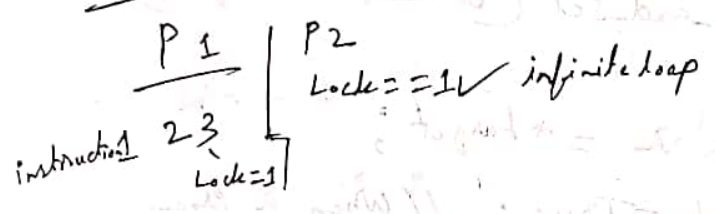 P 1 | P2
Lock = = 1 ✓ infinite loop
instruction 1 2 3
Lock = 1